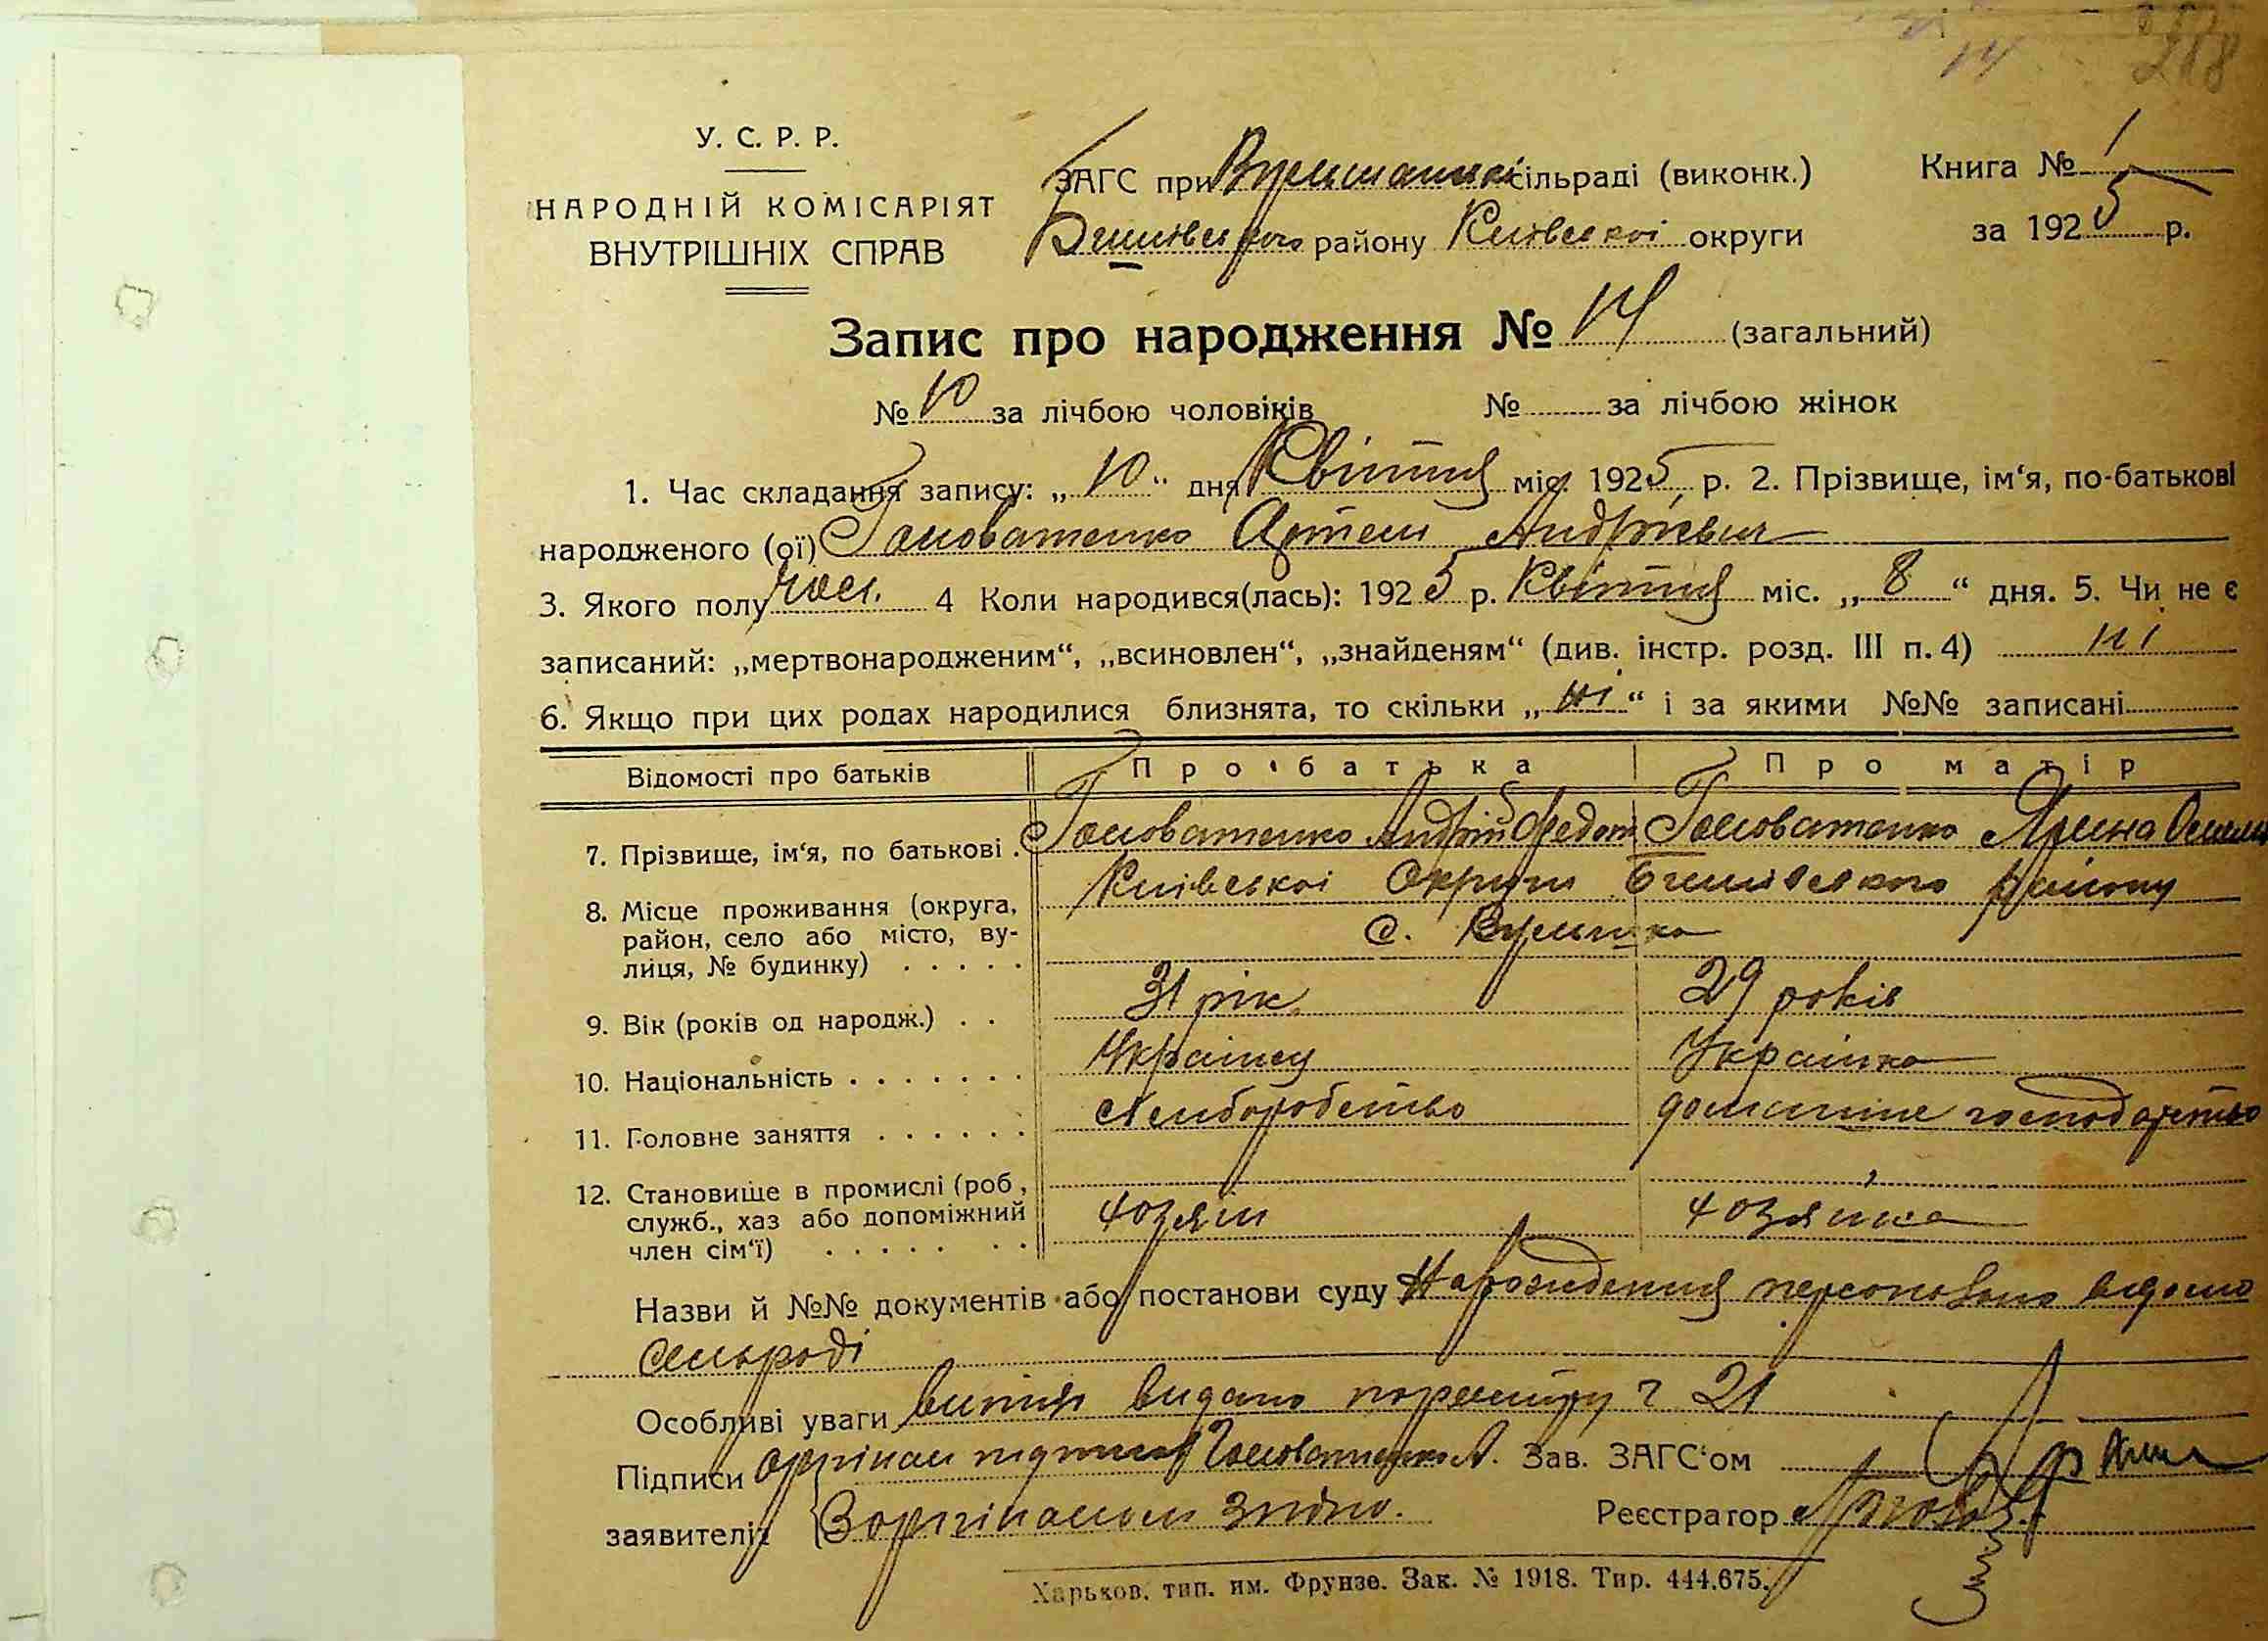 14 218
У. С. Р. Р.
НАРОДНІЙ КОМІСАРІЯТ
ВНУТРІШНІХ СПРАВ
ЗАГС при сільраді (виконк.)
району Київської округи
Книга № 1
за 1925 р.
Запис про народження № 14 (загальний)
№ 10 за лічбою чоловіків № за лічбою жінок
1. Час складання запису: „ 10 “ дня Квітня міс. 1925 р. 2. Прізвище, ім‘я, по-батькові
народженого (ої) Головатенко Артем Андрієвич
3. Якого полу чол. 4 Коли народився(лась): 1925 р. Квітня міс. „ 8 “ дня. 5. Чи не є
записаний: „мертвонародженим“, „всиновлен“, „знайденям“ (див. інстр. розд. III п. 4) ні
6. Якщо при цих родах народилися близнята, то скільки „ ні “ і за якими №№ записані
Відомості про батьків Про батька Про матір
7. Прізвище, ім‘я, по батькові . Головатенко Андрій Федот Головатенко Ярина
8. Місце проживання (округа, Київської Округи району
район, село або місто, ву- с.
лиця, № будинку) . . . . .
9. Вік (років од народж.) . . 31 рік 29 років
10. Національність . . . . . . . Українец Українка
11. Головне заняття . . . . . . хліборобство домашне господарство
12. Становище в промислі (роб,
служб., хаз або допоміжний хозяін хозяйка
член сім‘ї) . . . . . . .
Назви й №№ документів або постанови суду Народження персонально відомо
сільраді
Особливі уваги витяг видано № 21
Підписи орігінал підписав Головатенко А. Зав. ЗАГС‘ом
заявителів З орігіналом згідно. Реєстратор
Харьков. тип. им. Фрунзе. Зак. № 1918. Тир. 444.675.